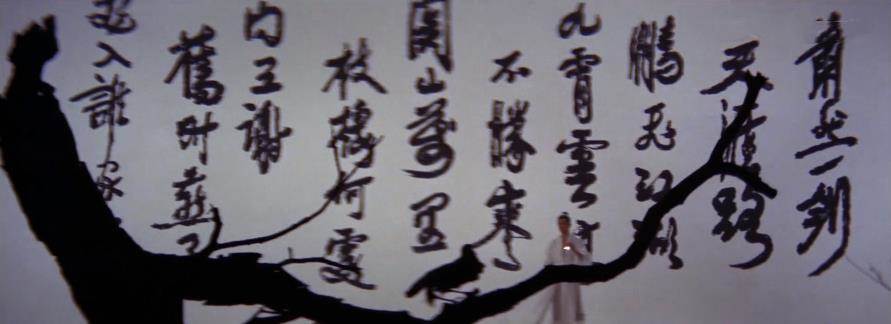 然一劍
天涯路
鵬飛江湖
九霄雲
不勝
關山萬里
枝棲何處
內王謝
舊時燕子
飛入誰家